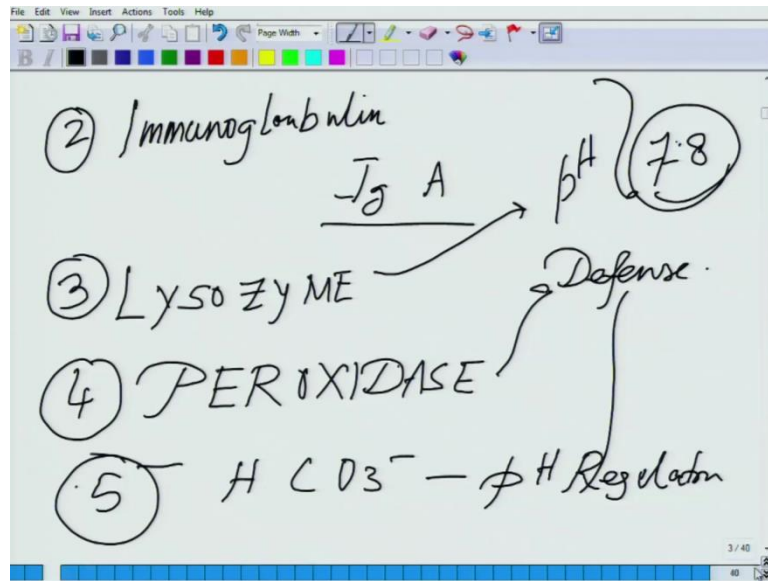 File Edit View Insert Actions Tools Help
Page Width
B I
2 Immunogloubulin
Ig A
pH 7.8
3 LYSOZYME
Defense.
4 PEROXIDASE
5 HCO3⁻ — pH Regulaton
3 / 40
40